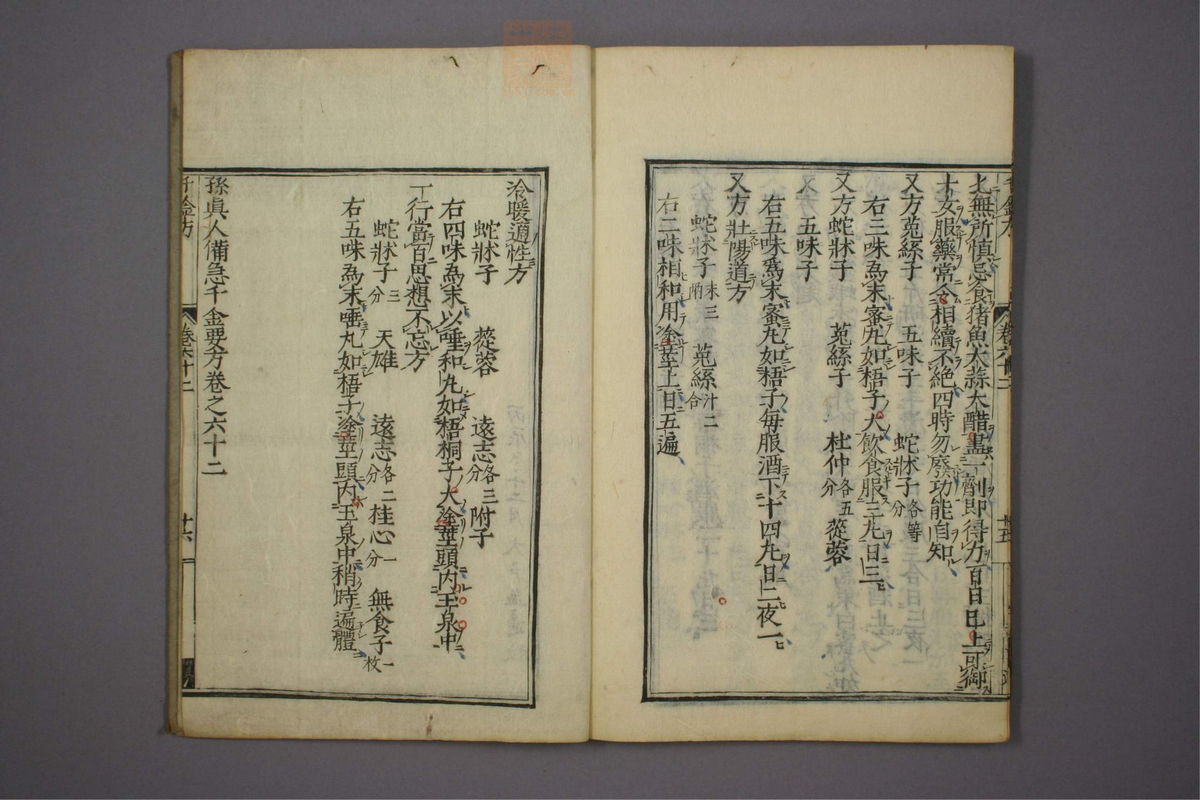 上無所慎忌食猪魚大蒜大醋盡一劑即得力百日已上可御
十女服藥常令相續不絕四時勿廢功能自知
又方菟絲子 五味子 蛇牀子各等分
右三味為末蜜丸如梧子大飲食服三丸日三
又方蛇牀子 菟絲子 杜仲各五分 蓯蓉
又方 五味子
右五味為末蜜丸如梧子每服酒下十四丸日二夜一
又方壯陽道方
蛇牀子末三 菟絲汁二合
右二味相和用塗莖上日五遍
千金方 卷六十二 廿五
冷暖適性方
蛇牀子 蓯蓉 遠志各三分 附子
右四味為末以唾和丸如梧桐子大塗莖頭內玉泉中
丁行當百思想不忘方
蛇牀子三分 天雄 遠志各二分 桂心一分 無食子一枚
右五味為末唾丸如梧子塗莖頭內玉泉中稍時遍體
孫真人備急千金要方卷之六十二
千金方 卷六十二 廿六